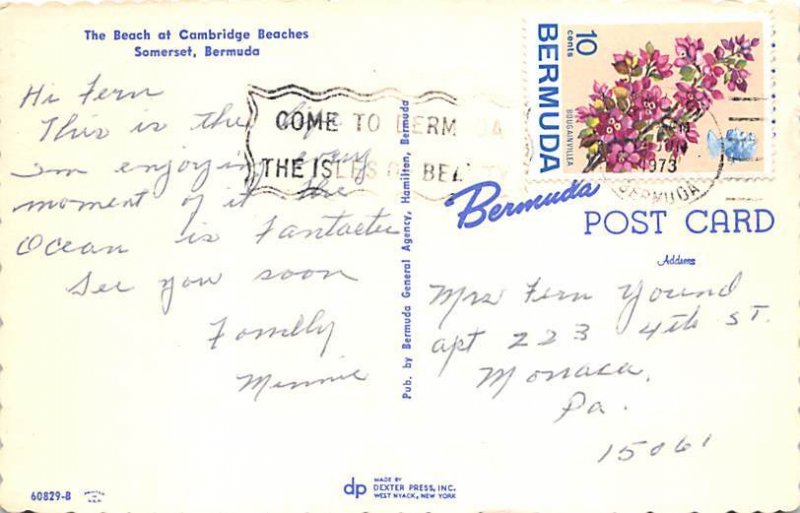 The Beach at Cambridge Beaches
Somerset, Bermuda
Hi Fern
This is the life
Im enjoying every
moment of it the
Ocean is Fantactic
See you soon
Fondly
Minnie
COME TO BERMUDA
THE ISLES OF BEAUTY
Pub. by Bermuda General Agency, Hamilton, Bermuda
10 cents
BERMUDA
BOUGAINVILLEA
JUN
1973
BERMUDA
Bermuda
POST CARD
Address
Mrs Fern Yound
apt 223 4th ST.
Monaca,
Pa.
15061
60829-B
dp
MADE BY
DEXTER PRESS, INC.
WEST NYACK, NEW YORK